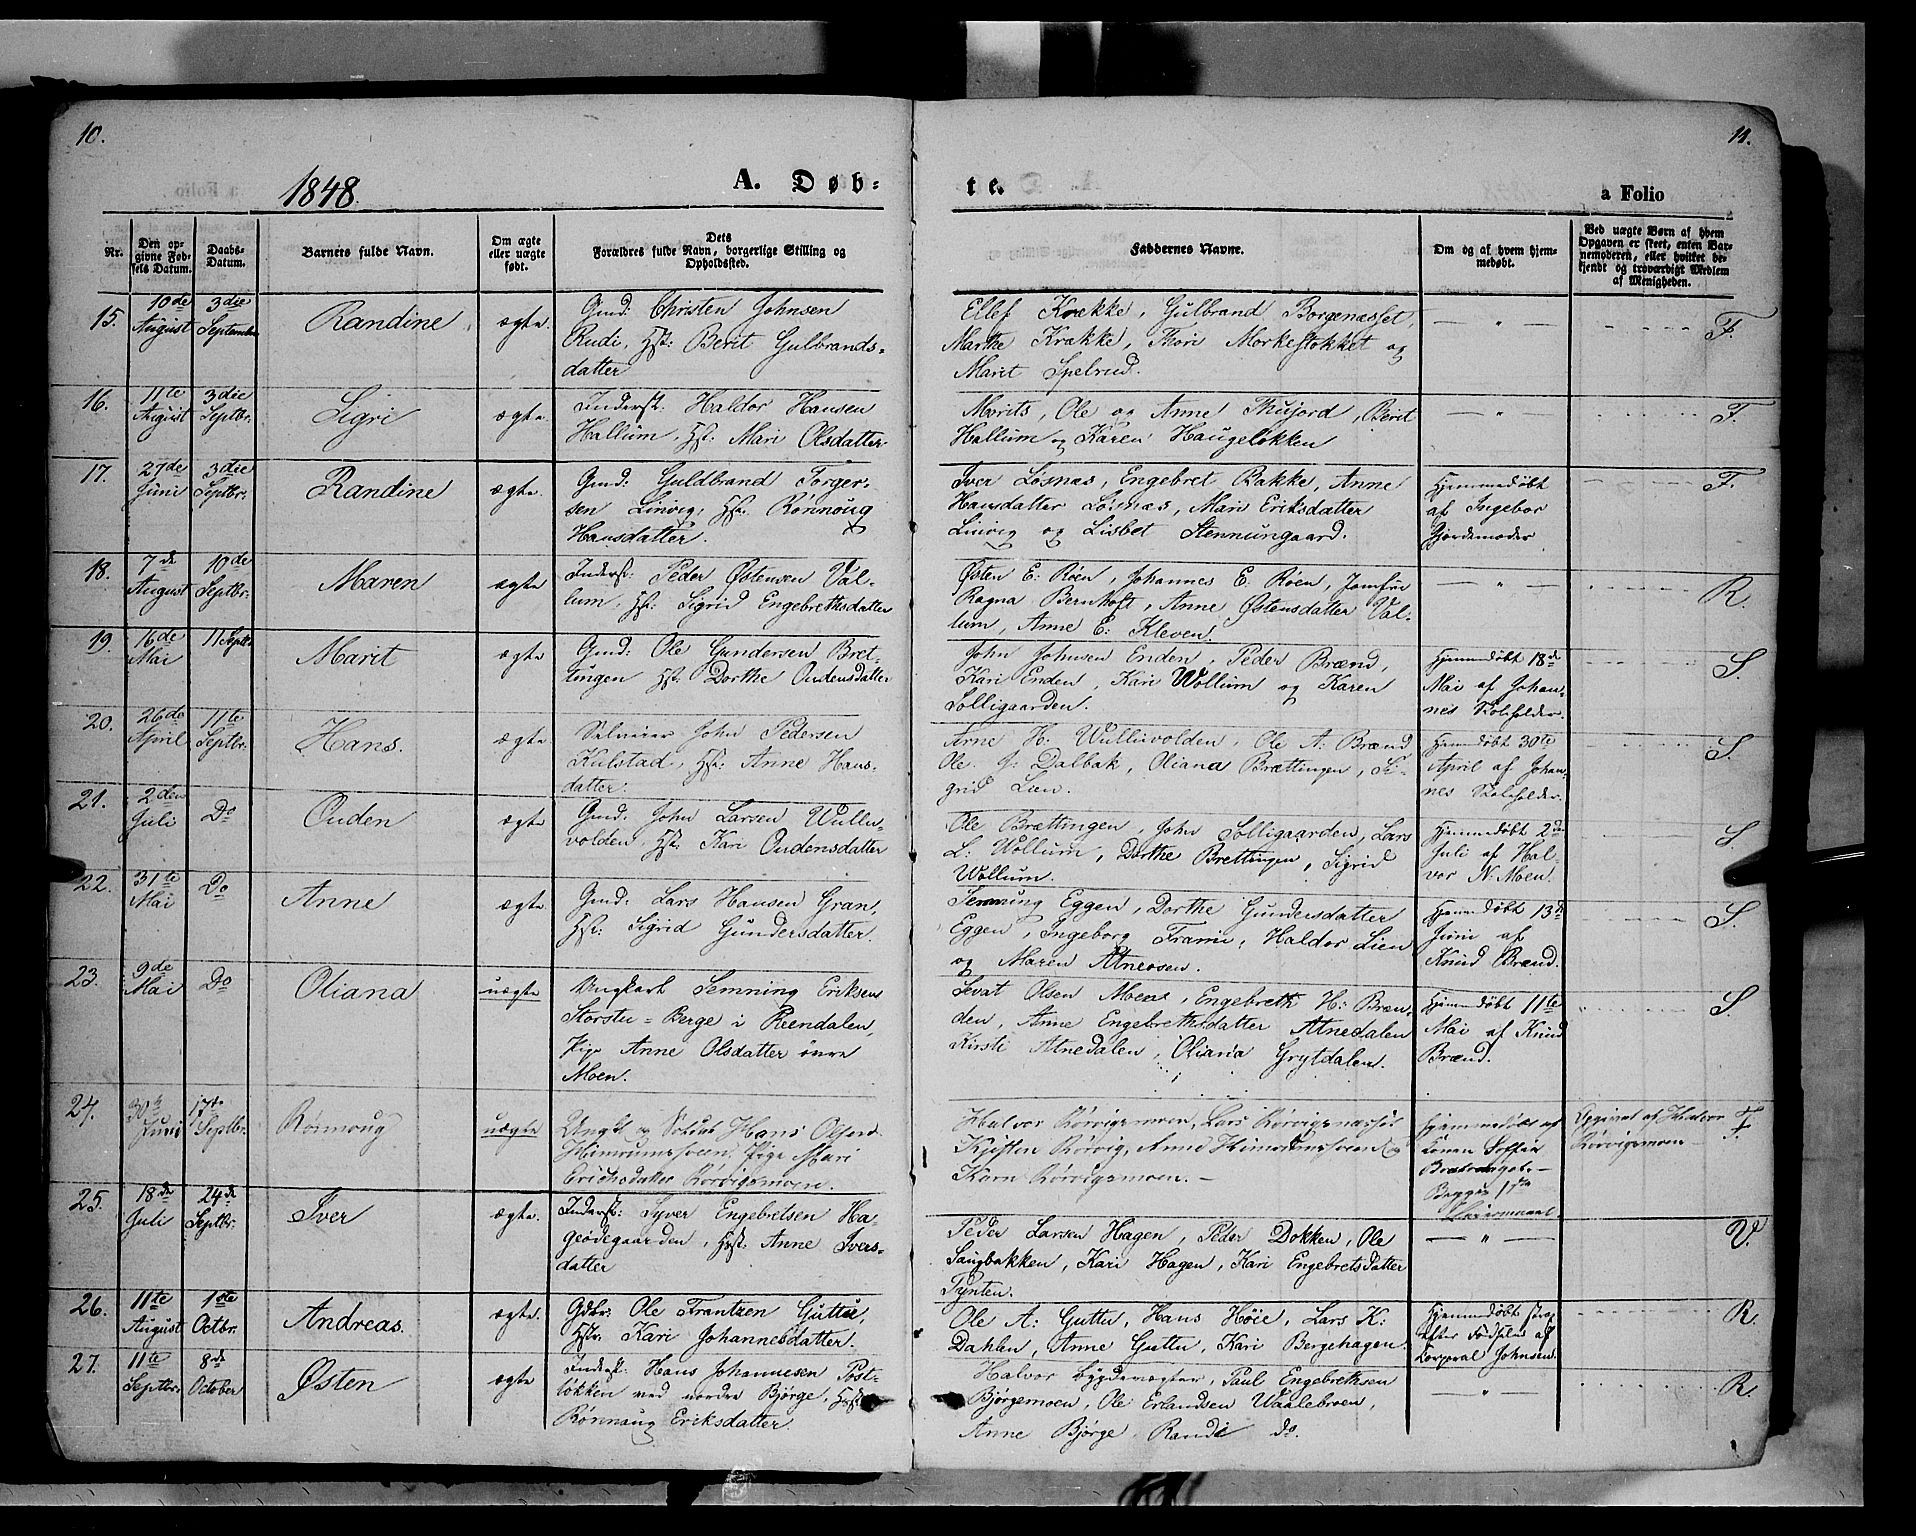 10.
11.
1848.
A. Døb-
te.
a Folio
Nr.
Den op-
givne Fød-
sels Datum.
Daabs-
Datum.
Barnets fulde Navn.
Om ægte
eller uægte
født.
Dets
Forældres fulde Navn, borgerlige Stilling og
Opholdssted.
Faddernes Navne.
Om og af hvem hjem-
medøbt.
Ved uægte Børn af hvem
Opgaven er skeet, enten Bar-
nemoderen, eller hvilket be-
kjendt og troværdigt Medlem
af Menigheden.
15.
10de
August
3die
September
Randine
ægte.
Gmd: Christen Johnsen
Rudi, Hst: Berit Gulbrands-
datter
Ellef Krække, Gulbrand Borgenæsset,
Marthe Krække, Thore Morkestokket og
Marit Spelrud.
— " —
F.
16.
11te
August
3die
Septbr.
Sigri
ægte.
Inderst: Haldor Hansen
Hallum, Hst: Mari Olsdatter
Morits, Ole og Anne Thujord, Berit
Hallum og Karen Haugeløkken
— " —
F.
17.
27de
Juni
3die
Septbr.
Randine
ægte.
Gmd: Guldbrand Torger-
sen Linvig, Hst: Rønnoug
Hansdatter.
Iver Løsnæs, Engebret Bakke, Anne
Hansdatter Løsnæs, Mari Eriksdatter
Linvig og Lisbet Stennungaard.
Hjemmedøbt
af Ingebor
Gjordemoder
F.
18.
7de
August
10de
Septbr.
Maren
ægte
Inderst: Peder Østensen Val-
lum, Hst: Sigrid Engebrethsdatter
Østen E: Røen, Johannes E: Røen, Jomfru
Ragna Bernhoft, Anne Østensdatter Val-
lum, Anne E: Kleven.
— " —
R.
19.
16de
Mai
11 Septbr.
Marit
ægte
Gmd: Ole Gundersen Bret-
tingen Hst: Dorthe Oudensdatter
John Johnsen Enden, Peder Brænd,
Kari Enden, Kari Wollum og Karen
Solligaarden.
Hjemmedøbt 18de
Mai af Johan-
nes Skoleholder.
S.
20.
26de
April
11te
Septbr.
Hans.
ægte
Selveier John Pedersen
Kulstad, Hst: Anne Hans-
datter.
Arne H: Wulluvolden, Ole A: Brænd
Ole J: Dalbak, Oliana Brættingen, Si-
grid Lien.
Hjemmedøbt 30te
April af Johan-
nes Skoleholder.
S.
21.
2den
Juli
Do
Ouden
ægte
Gmd: John Larsen Wullu-
volden, Hst: Kari Oudensdatter
Ole Brættingen, John Solligaarden, Lars
L: Wollum, Dorthe Brettingen, Sigrid
Wollum.
Hjemmedøbt 2de
Juli af Hal-
vor N: Moen.
S.
22.
31te
Mai
Do
Anne
ægte.
Gmd: Lars Hansen Gran,
Hst: Sigrid Gundersdatter.
Semming Eggen, Dorthe Gundersdatter
Eggen, Ingeborg Frami, Haldor Lien
og Maren Atneosen.
Hjemmedøbt 13de
Juni af
Knud Brænd.
S.
23.
9de
Mai
Do
Oliana
uægte
Ungkarl Semming Eriksen
Storstu-Berge i Reendalen,
Pige Anne Olsdatter øvre
Moen.
Sevat Olsen Moen, Engebreth H: Bræn-
den, Anne Engebrethsdatter Atnedalen
Kirsti Atnedalen, Oliana Grytdalen.
Hjemmedøbt 11te
Mai af Knud
Brænd.
S.
24.
30te
Juni
17de
Septbr.
Rønnoug
uægte
Ungk: og Soldat Hans Olsen
Himrumsveen, Pige Mari
Erichsdatter Rørvigsmoen.
Halvor Rørvigsmoen, Lars Rørvignæsset
Kjesten Rørvig, Anne Himrumsveen og
Karn Rørvigsmoen. —
Hjemmedøbt af
Konen Soffia
Begge 1ste
Opgivet af Halvor
Rørvigsmoen
F.
25.
18de
Juli
24de
Septbr.
Iver
ægte.
Inderst: Syver Engebretsen Ha-
geødegaarden, Hst: Anne Ivers-
datter
Peder Larsen Hagen, Peder Dokken, Ole
Saugbakken, Kari Hagen, Kari Engebretsdatter
Tynten.
— " —
V.
26.
11te
August
1ste
Octbr.
Andreas.
ægte.
Gdbr: Ole Frantzen Guttue,
Hstr: Kari Johannesdatter.
Ole A: Guttu, Hans Høie, Lars K:
Dahlen, Anne Guttu, Kari Bergehagen.
Hjemmedøbt strax
efter Fødselen af
Korporal Johnsen.
R.
27.
11te
Septbr.
8de
October
Østen
ægte
Inderst: Hans Johannesen Post-
løkken med nordre Bjørge, Hst
Rønnaug Eriksdatter.
Halvor Bygdevægter, Paul Engebrethsen
Bjørgemoen, Ole Erlandsen Waalebroen,
Anne Bjørge, Randi do.
— " —
R.